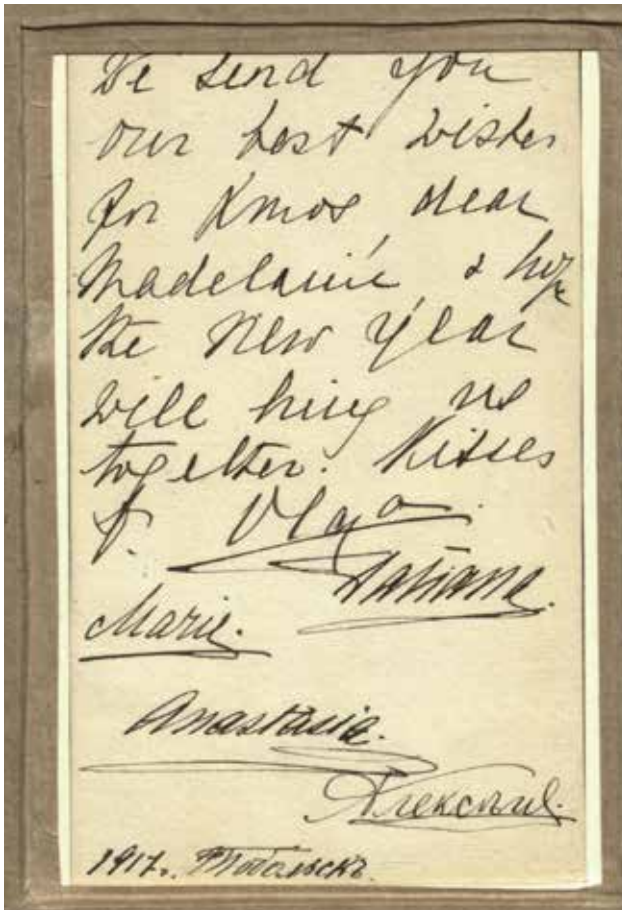 We send you
our best wishes
for Xmas, dear
Madelaine, & hope
the New Year
will bring us
together. Kisses
f. Olga.
Tatiana.
Marie.
Anastasia.
Алексѣй.
1917 г. Тобольскъ.